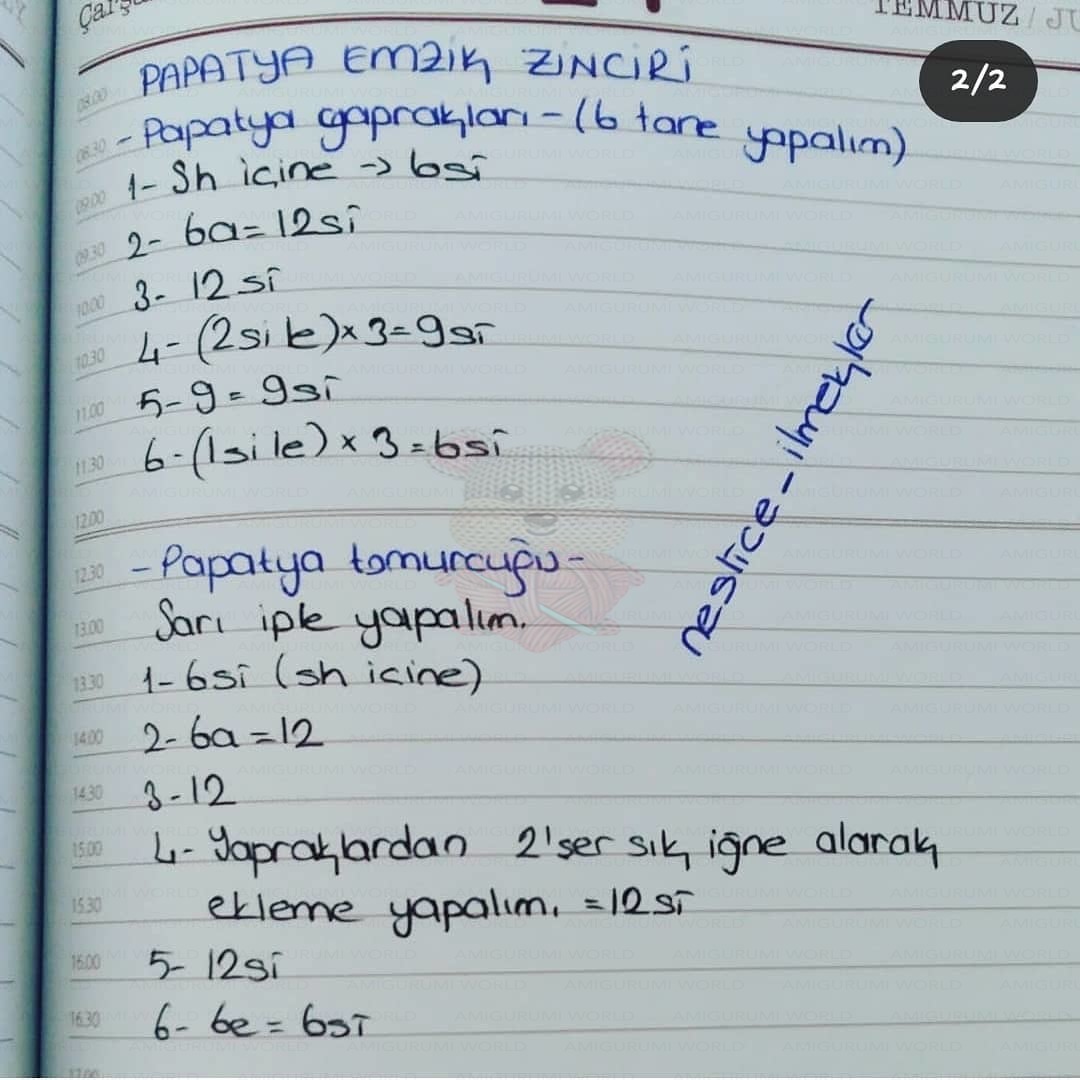 TEMMUZ / JU
2/2
PAPATYA EMZİK ZİNCİRİ
08.00
- Papatya yaprakları - (6 tane yapalım)
08.30
1- Sh içine -> 6si
09.00
2- 6a = 12si
09.30
3- 12 si
10.00
4- (2si 1e) x 3 = 9si
10.30
5- 9 = 9si
11.00
6- (1si 1e) x 3 = 6si
11.30
12.00
neslice - ilmekler
- Papatya tomurcuğu -
12.30
Sarı iple yapalım.
13.00
1- 6si (sh içine)
13.30
2- 6a = 12
14.00
3- 12
14.30
4- Yapraklardan 2'ser sık iğne alarak
15.00
ekleme yapalım. = 12 si
15.30
5- 12si
16.00
6- 6e = 6si
16.30
AMIGURUMI WORLD